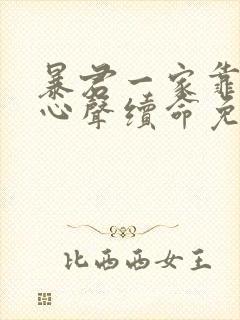 暴君一家靠
心聲續命免
比西西女王